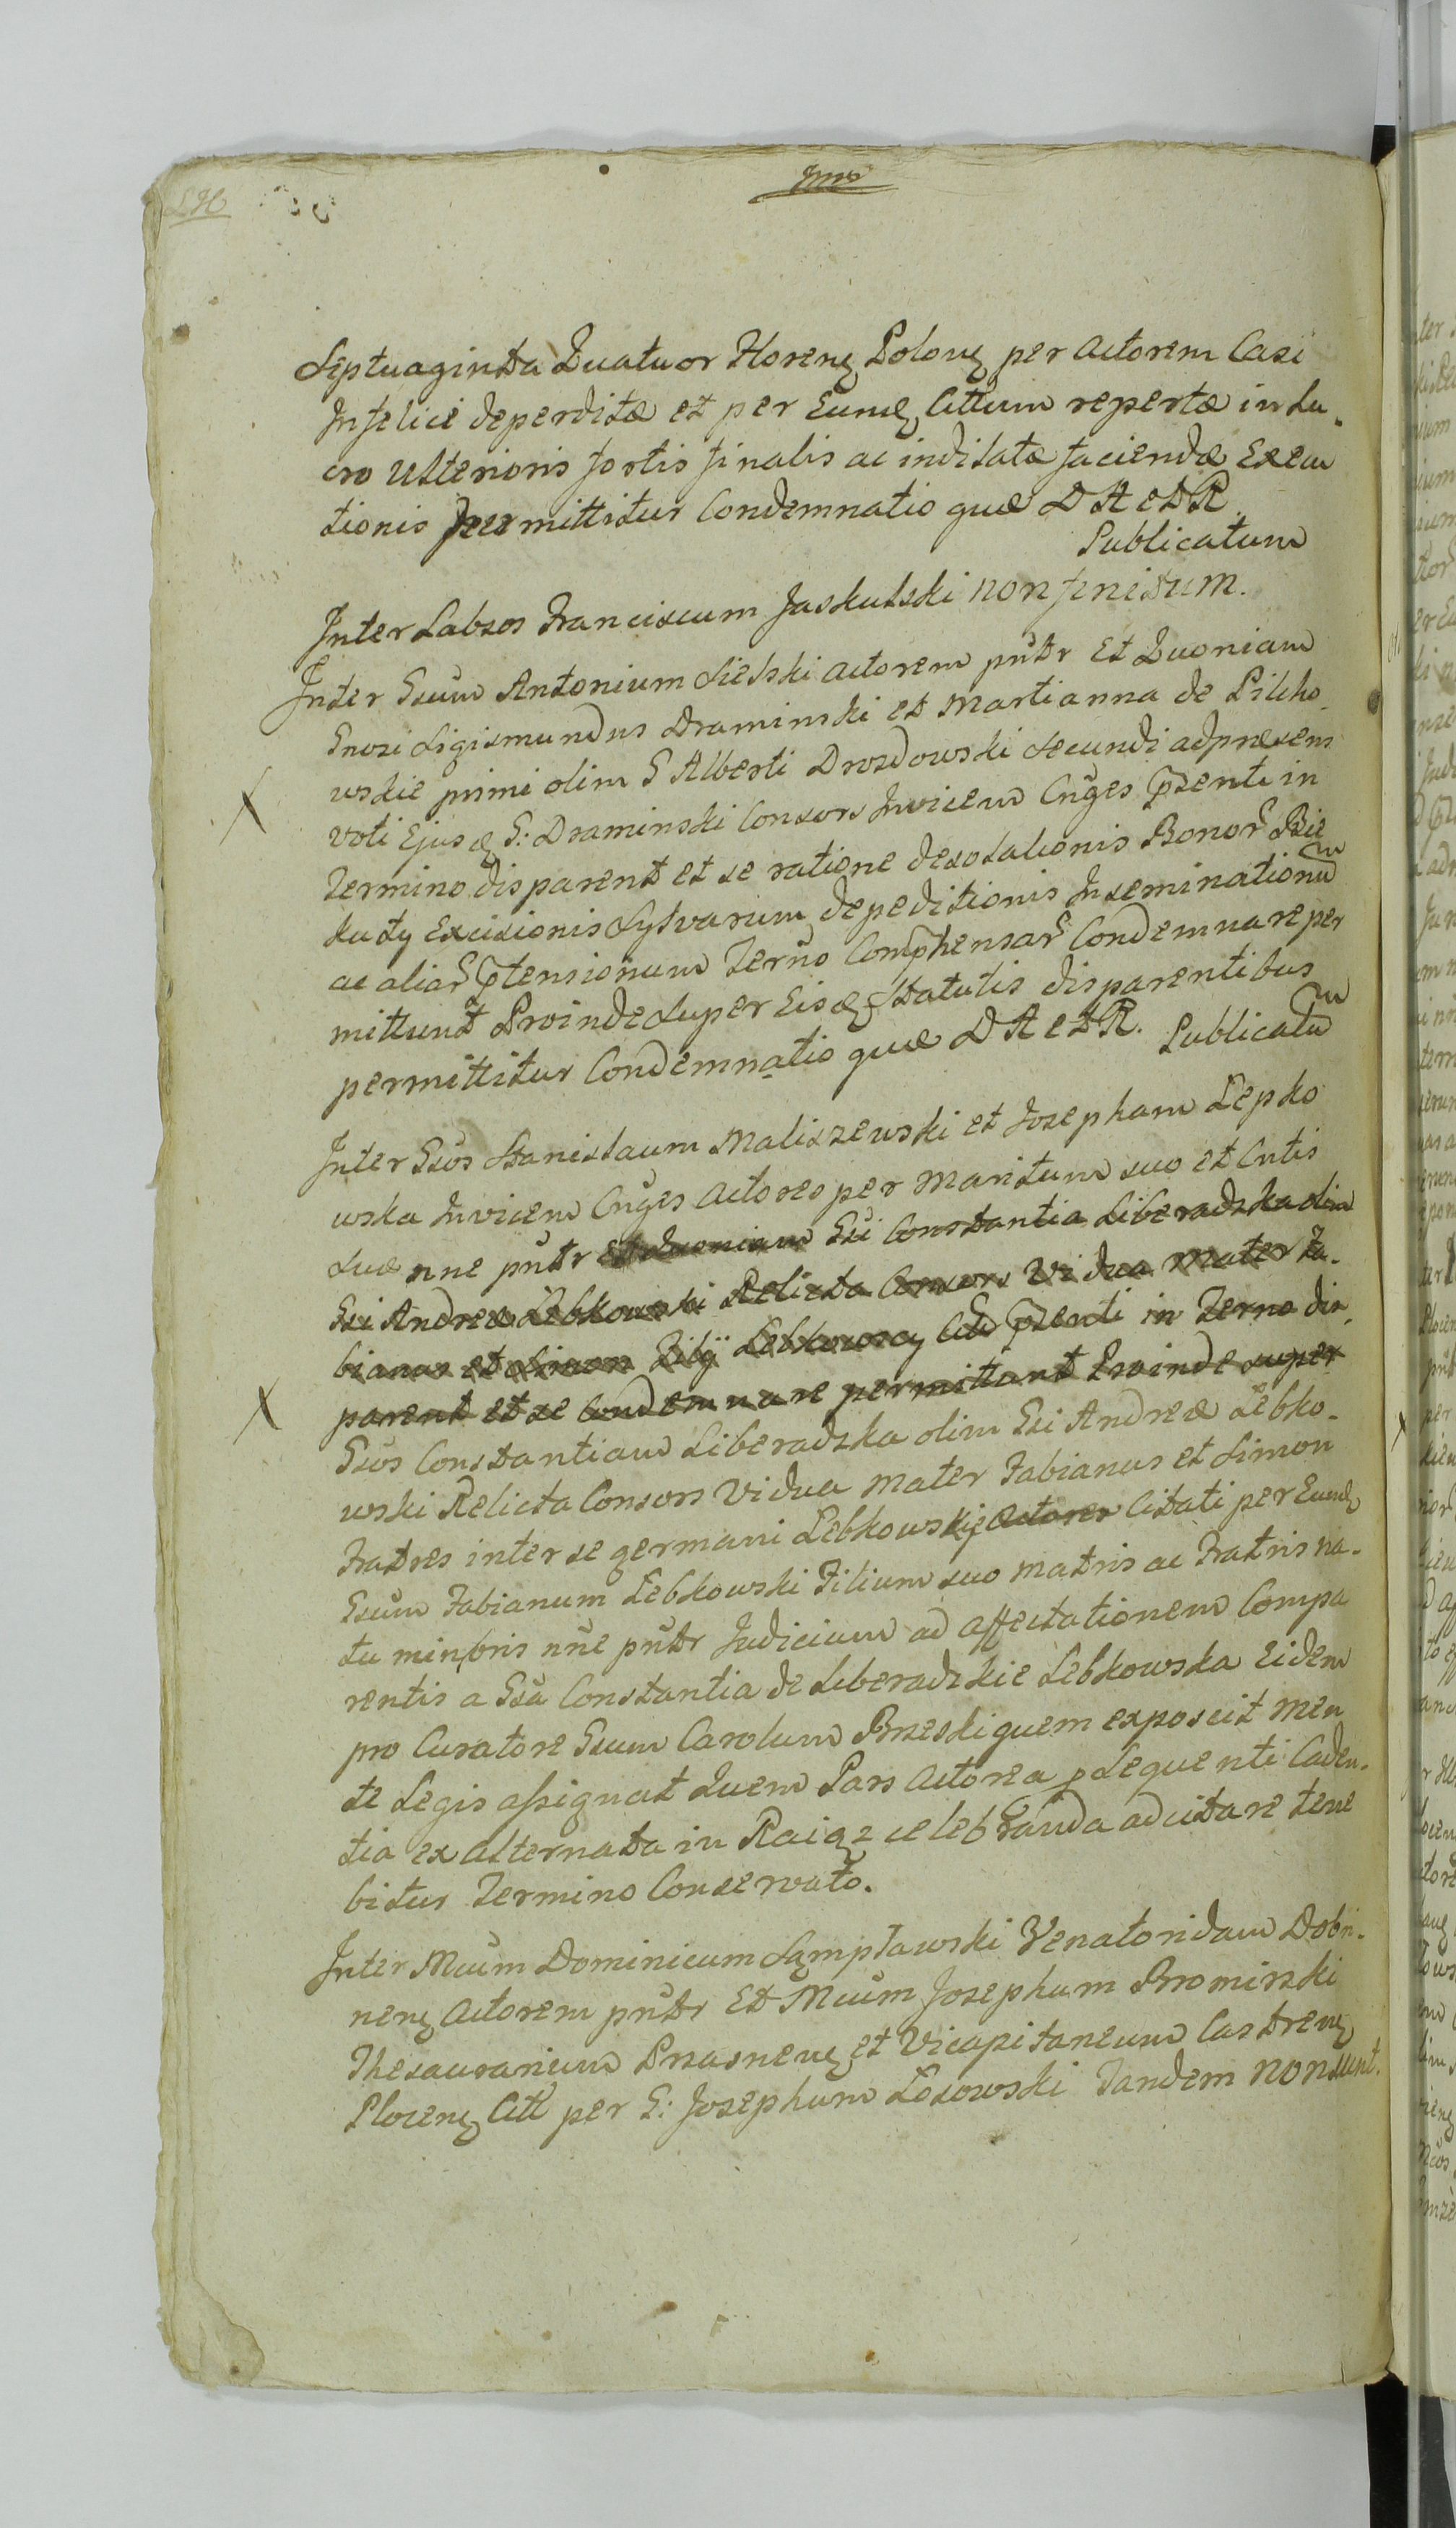 Septuaginta Quatuor Florenꝫ Polonꝫ per Actorem Casi
Infelici deperditæ et per Eumꝫ Cittum repertæ in Lu-
cro Ulterioris fortis finalis ac indilatæ faciendæ Execu
tionis permittitur Condemnatio quæ D A et D R
Publicatum
Inter Labsos Franciscum Jaskulski non finitum.
Inter Gsum Antonium Sielski Actorem pntr Et Quoniam
Gnosi Sigismundus Draminski et Martianna de Pilcho
wskie primi olim G Alberti Drozdowski secundi ad præsens
voti Ejusꝫ G: Draminski Consors Invicem Cnges Pzenti in
Termino disparent et se ratione desolationis Bonor Bie
kuty Excisionis Sylvarum depeditionis Inseminationu
ac aliar Ptensionum Terno Comphensar Condemnare per
mittunt Proinde Super Eisꝫ Statutis disparentibus
permittitur Condemnatio quæ D A et D R. Publicatu
Inter Gsos Stanislaum Maliszewski et Josepham Lepko
wska Invicem Cnges Actores per Maritum suo et Cntis
suæ nne pntr et Quoniam Gsi Constantia Liberadzka olim
Gsi Andreæ Lebkowski Relicta Consors Vidua Mater Fa-
bianus et Simon Filij Lebkowscy Citti Pzenti in Terno dis
parent et se Condemnare permittant Proinde super
Gsos Constantiam Liberadzka olim Gsi Andreæ Lebko-
wski Relicta Consors Vidua Mater Fabianus et Simon
Fratres inter se germani Lebkowskie Actores Citati per Eundꝫ
Gsum Fabianum Lebkowski Filium suo Matris ac Fratris na-
tu minoris nne pntr Judicium ad affectationem Compa
rentis a Gsa Constantia de Liberadzkie Lebkowska Eidem
pro Curatore Gsum Carolum Brzeski quem exposcit men
te Legis assignat Quem Pars Actorea p Sequenti Caden-
tia ex alternata in Raigz celebranda adcitare tene
bitur Termino Conservato.
Inter Mcum Dominicum Sampławski Venatoridam Dobri-
nenꝫ Actorem pntr Et Mcum Josephum Bromirski
Thesaurarium Prasnenꝫ et Vicapitaneum Castrenꝫ
Plocenꝫ Citt per G: Josephum Losowski Tandem non sunt.